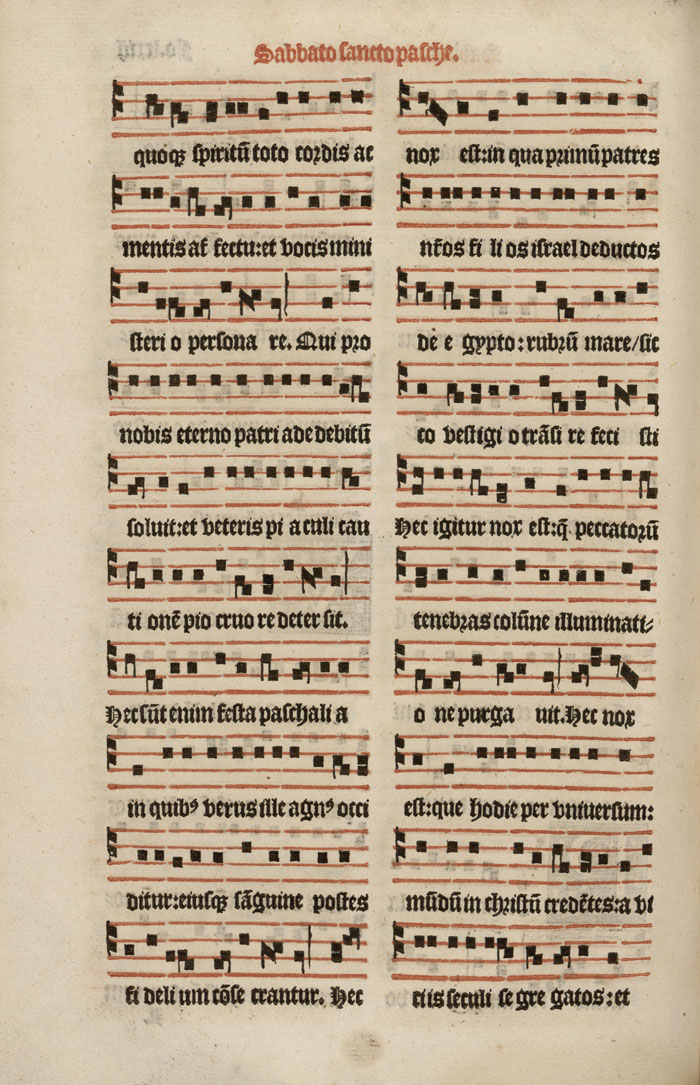 Sabbato sancto pasche.
quoqꝫ spiritū toto cordis ac
mentis af fectu:et vocis mini
steri o persona re. Qui pro
nobis eterno patri ade debitū
soluit:et veteris pi a culi cau
ti onē pio cruo re deter sit.
Hec sūt enim festa paschali a
in quibꝰ verus ille agnꝰ occi
ditur:eiusqꝫ sāguine postes
fi deli um cōse crantur. Hec
nox est:in qua primū patres
nr̄os fi li os israel deductos
de e gypto:rubrū mare/sic
co vestigi o trāsi re feci sti
Hec igitur nox est:q̄ peccatorū
tenebras colūne illuminati⸗
o ne purga uit. Hec nox
est:que hodie per vniuersum:
mūdū in christū credētes:a vi
ciis seculi se gre gatos:et